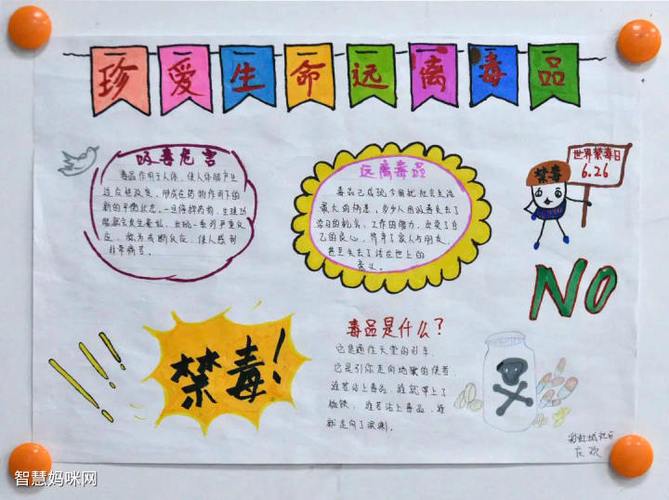 珍爱生命远离毒品
吸毒危害
毒品作用于人体，使人体能产生
适应性改变，形成在药物作用下的
新的平衡状态，一旦停掉药物，生理功
能就会发生紊乱，出现一系列严重反
应，称为戒断反应，使人感到
非常痛苦。
远离毒品
毒品已成现今世社会生活
最大的祸患，多少人因吸毒失去了
学习的机会，工作的能力，出卖了自
己的良心，背弃了家人与朋友，
甚至失去了活在世上的
意义。
世界禁毒日
6.26
禁毒
NO
禁毒！
毒品是什么？
它是通往天堂的列车
它是引你走向地狱的使者
谁若沾上毒品，谁就带上了
枷锁，谁若沾上毒品，谁
就走向了深渊。
智慧妈咪网